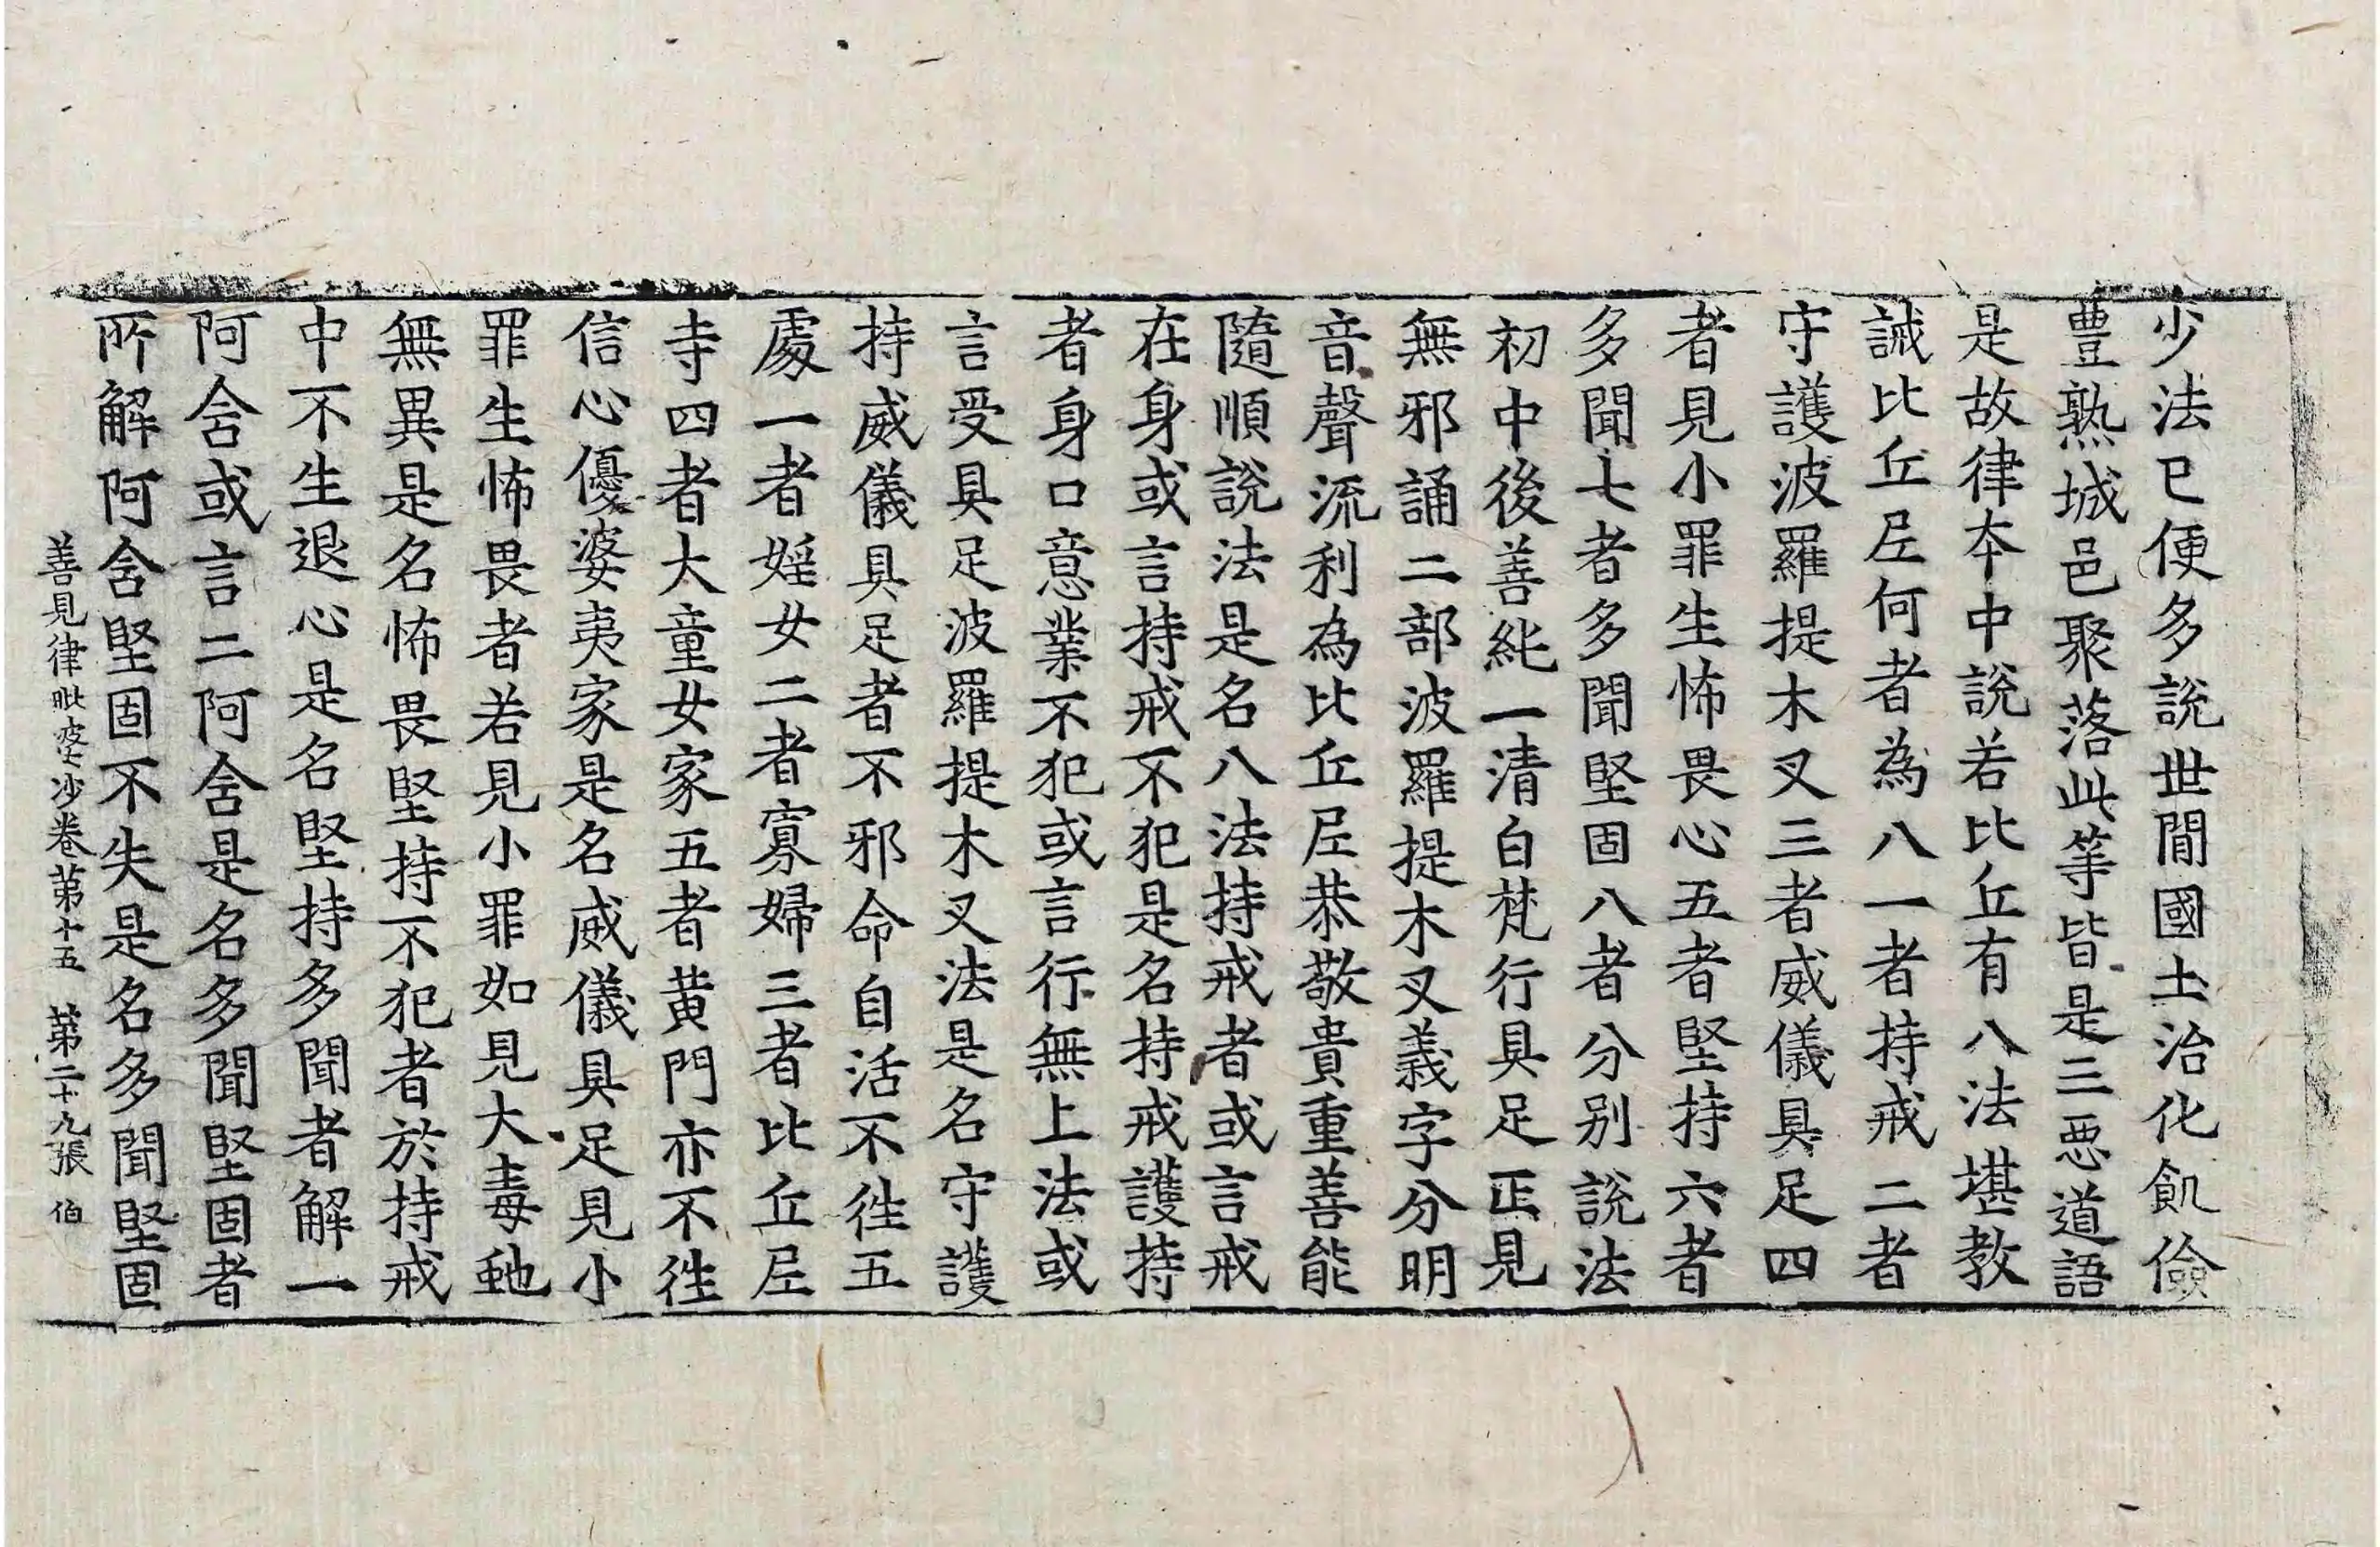 少法已便多說世間國土治化飢儉
豊熟城邑聚落此等皆是三惡道語
是故律本中說若比丘有八法堪教
誡比丘尼何者為八一者持戒二者
守護波羅提木叉三者威儀具足四
者見小罪生怖畏心五者堅持六者
多聞七者多聞堅固八者分别說法
初中後善純一清白梵行具足正見
無邪誦二部波羅提木叉義字分明
音聲流利為比丘尼恭敬貴重善能
隨順說法是名八法持戒者或言戒
在身或言持戒不犯是名持戒護持
者身口意業不犯或言行無上法或
言受具足波羅提木叉法是名守護
持威儀具足者不邪命自活不往五
處一者婬女二者寡婦三者比丘尼
寺四者大童女家五者黄門亦不往
信心優婆夷家是名威儀具足見小
罪生怖畏者若見小罪如見大毒虵
無異是名怖畏堅持不犯者於持戒
中不生退心是名堅持多聞者解一
阿含或言二阿含是名多聞堅固者
所解阿含堅固不失是名多聞堅固
善見律毗婆沙卷第十五 第二十九張 伯